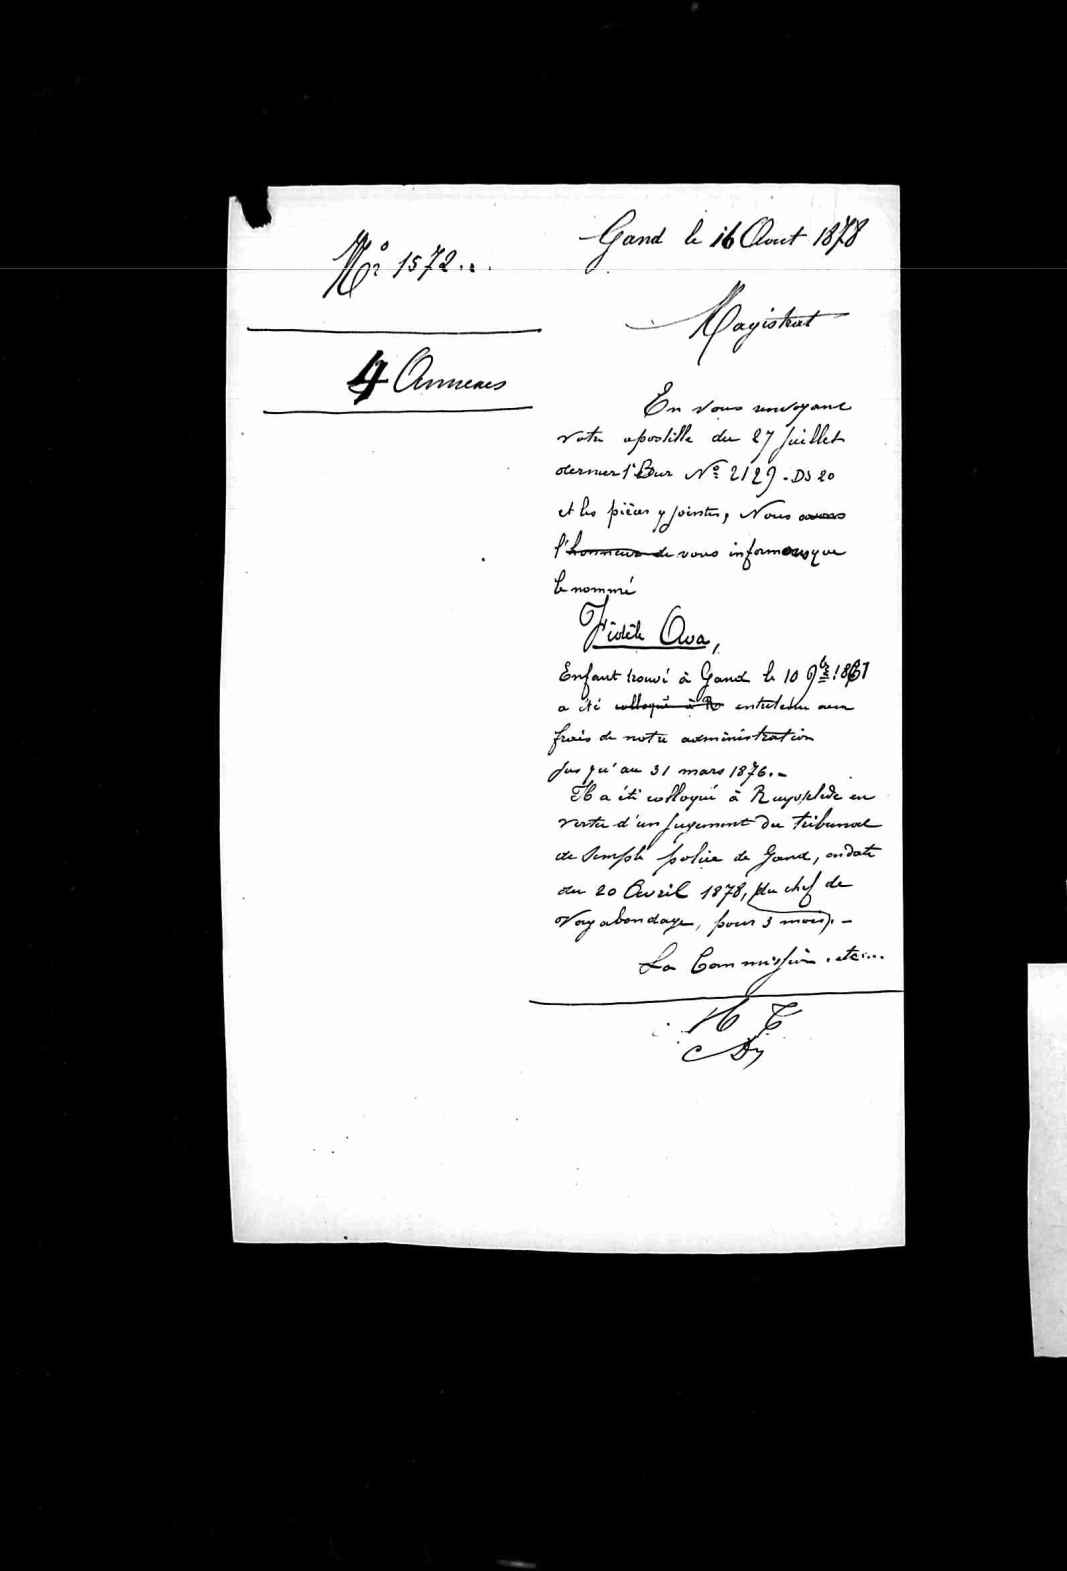 Gand le 16 Aout 1878
Nº 1572.
Magistrat
4 Annexes
En vous renvoyant
votre apostille du 27 Juillet
dernier 1r Bur Nº 2129. Ds 20
et les pièces y jointes, Nous avons
l'honneur de vous informons que
le nommé
Fidèle Ava,
Enfant trouvé à Gand le 10 9bre 1861
a été colloqué à R entretenu aux
frais de notre administration
jusqu'au 31 mars 1876.-
Il a été colloqué à Ruysselede en
vertu d'un jugement du tribunal
de Simple police de Gand, en date
du 20 Avril 1878, du chef de
vagabondage, pour 3 mois).-
La Commission. etc...